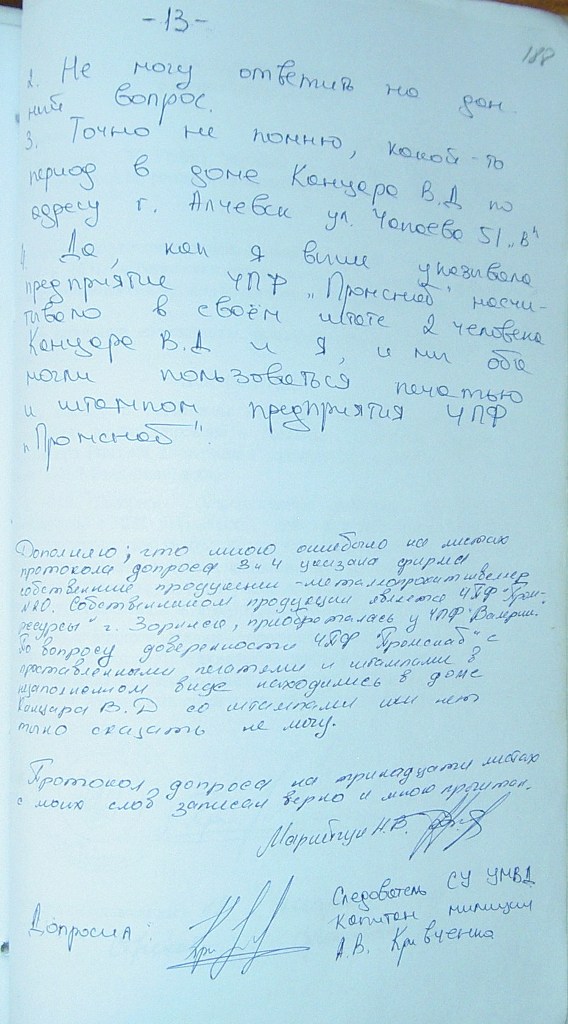 -13-
188
2. Не могу ответить на дан
ный вопрос.
3. Точно не помню, какой-то
период в доме Канцара В.Д по
адресу г. Алчевск ул. Чапаева 51 „в"
4. Да, как я выше указывала
предприятие ЧПФ „Промснаб" насчи-
тывало в своём штате 2 человека
Канцара В.Д и я, и мы оба
могли пользоваться печатью
и штампом предприятия ЧПФ
„Промснаб".
Дополняю, что мною ошибочно на листах
протокола допроса 3 и 4 указана фирма
собственник продукции - металлопрокат швеллер
№20. Собственником продукции является ЧПФ "Пром-
ресурсы" г. Зоринск, приобреталась у ЧПФ "Валерия".
По вопросу доверенности ЧПФ "Промснаб" с
проставленными печатями и штампами в
незаполненном виде находились в доме
Канцара В.Д со штампами или нет
точно сказать не могу.
Протокол допроса на тринадцати листах
с моих слов записан верно и мною прочитан.
Н.В.
Допросил:
Следователь СУ УМВД
капитан милиции
А.В. Кривченко